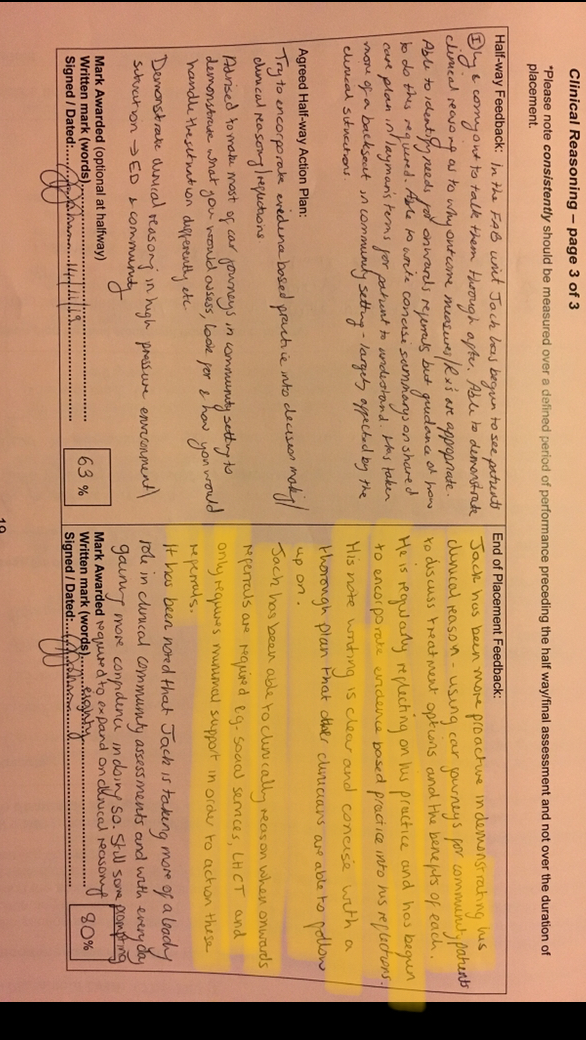 Clinical Reasoning – page 3 of 3
*Please note consistently should be measured over a defined period of performance preceding the half way/final assessment and not over the duration of
placement.
Half-way Feedback: In the FAB unit Jack has begun to see patients
(I)ly & coming out to talk them through after. Able to demonstrate
clinical reasoning as to why outcome measures/Rx's are appropriate.
Able to identify needs for onwards referrals but guidance of how
to do this required. Able to write concise summarys on shared
care plan in layman's terms for patient to understand. Has taken
more of a backseat in community setting - largely affected by the
clinical situations.
Agreed Half-way Action Plan:
Try to encorporate evidence based practice into decision making/
clinical reasoning/reflections
Advised to make most of car journeys in community setting to
demonstrate what you would assess, look for & how you would
handle the situation differently etc.
Demonstrate clinical reasoning in high pressure environment/
situation → ED & community
Mark Awarded (optional at halfway)
Written mark (words)
Signed / Dated:
63 %
End of Placement Feedback:
Jack has been more proactive in demonstrating his
clinical reason - using car journeys for community patients
to discuss treatment options and the benefits of each.
He is regularly reflecting on his practice and has begun
to encorporate evidence based practice into his reflections.
His note writing is clear and concise with a
thorough plan that other clinicians are able to follow
up on.
Jack has been able to clinically reason when onwards
referrals are required eg- social services, LHCT and
only requires minimal support in order to action these
referrals.
It has been noted that Jack is taking more of a leady
role in clinical community assessments and with everyday
gaining more confidence in doing so. Still some prompting
Mark Awarded required to expand on clinical reasoning
Written mark (words) eighty
Signed / Dated:
80%
19